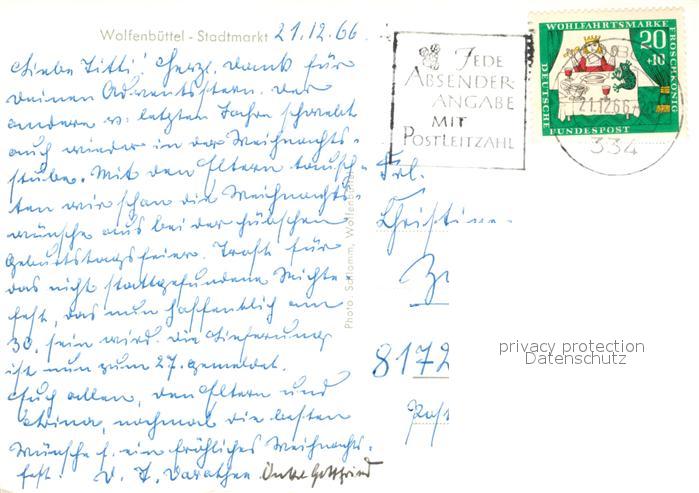 Wolfenbüttel - Stadtmarkt 21.12.66.
Liebe Titti! Herzl. Dank für
Deinen Adventsstern. Der
andere v. letzten Jahr schwebt
auch wieder in der Weihnachts-
stube. Mit den Eltern tausch-
ten wir schon die Weihnachts-
wünsche aus bei der hübschen
Geburtstagsfeier. Trost für
das nicht stattgefundene
fest, das nun hoffentlich am
30. sein wird. Die Lieferung
ist nun zum 27. gemeldet.
Euch allen, den Eltern und
nochmal die besten
Wünsche f. ein fröhliches Weihnachts-
fest. D. T. Dorothee Onkel Gottfried
Photo: Schlomm, Wolfenbüttel
JEDE
ABSENDER-
ANGABE
MIT
POSTLEITZAHL
WOHLFAHRTSMARKE
20
+10
FROSCHKÖNIG
DEUTSCHE
BUNDESPOST
21.12.66
334
Frl.
Christine
8172
Post
privacy protection
Datenschutz